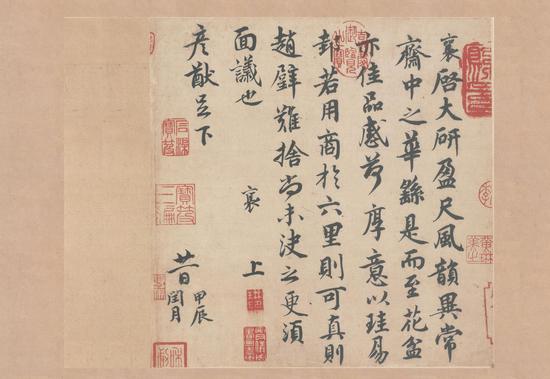 襄啓大研盈尺風韻異常
齋中之華繇是而至花盆
亦佳品感荷厚意以珪易
邽若用商於六里則可真則
趙璧難捨尚未決之更須
面議也
襄上
彥猷足下
廿一日甲辰閏月